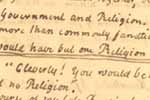 Government and Religion.
more than commonly
would have but one Religion
"Cleverly! You would be
no Religion.